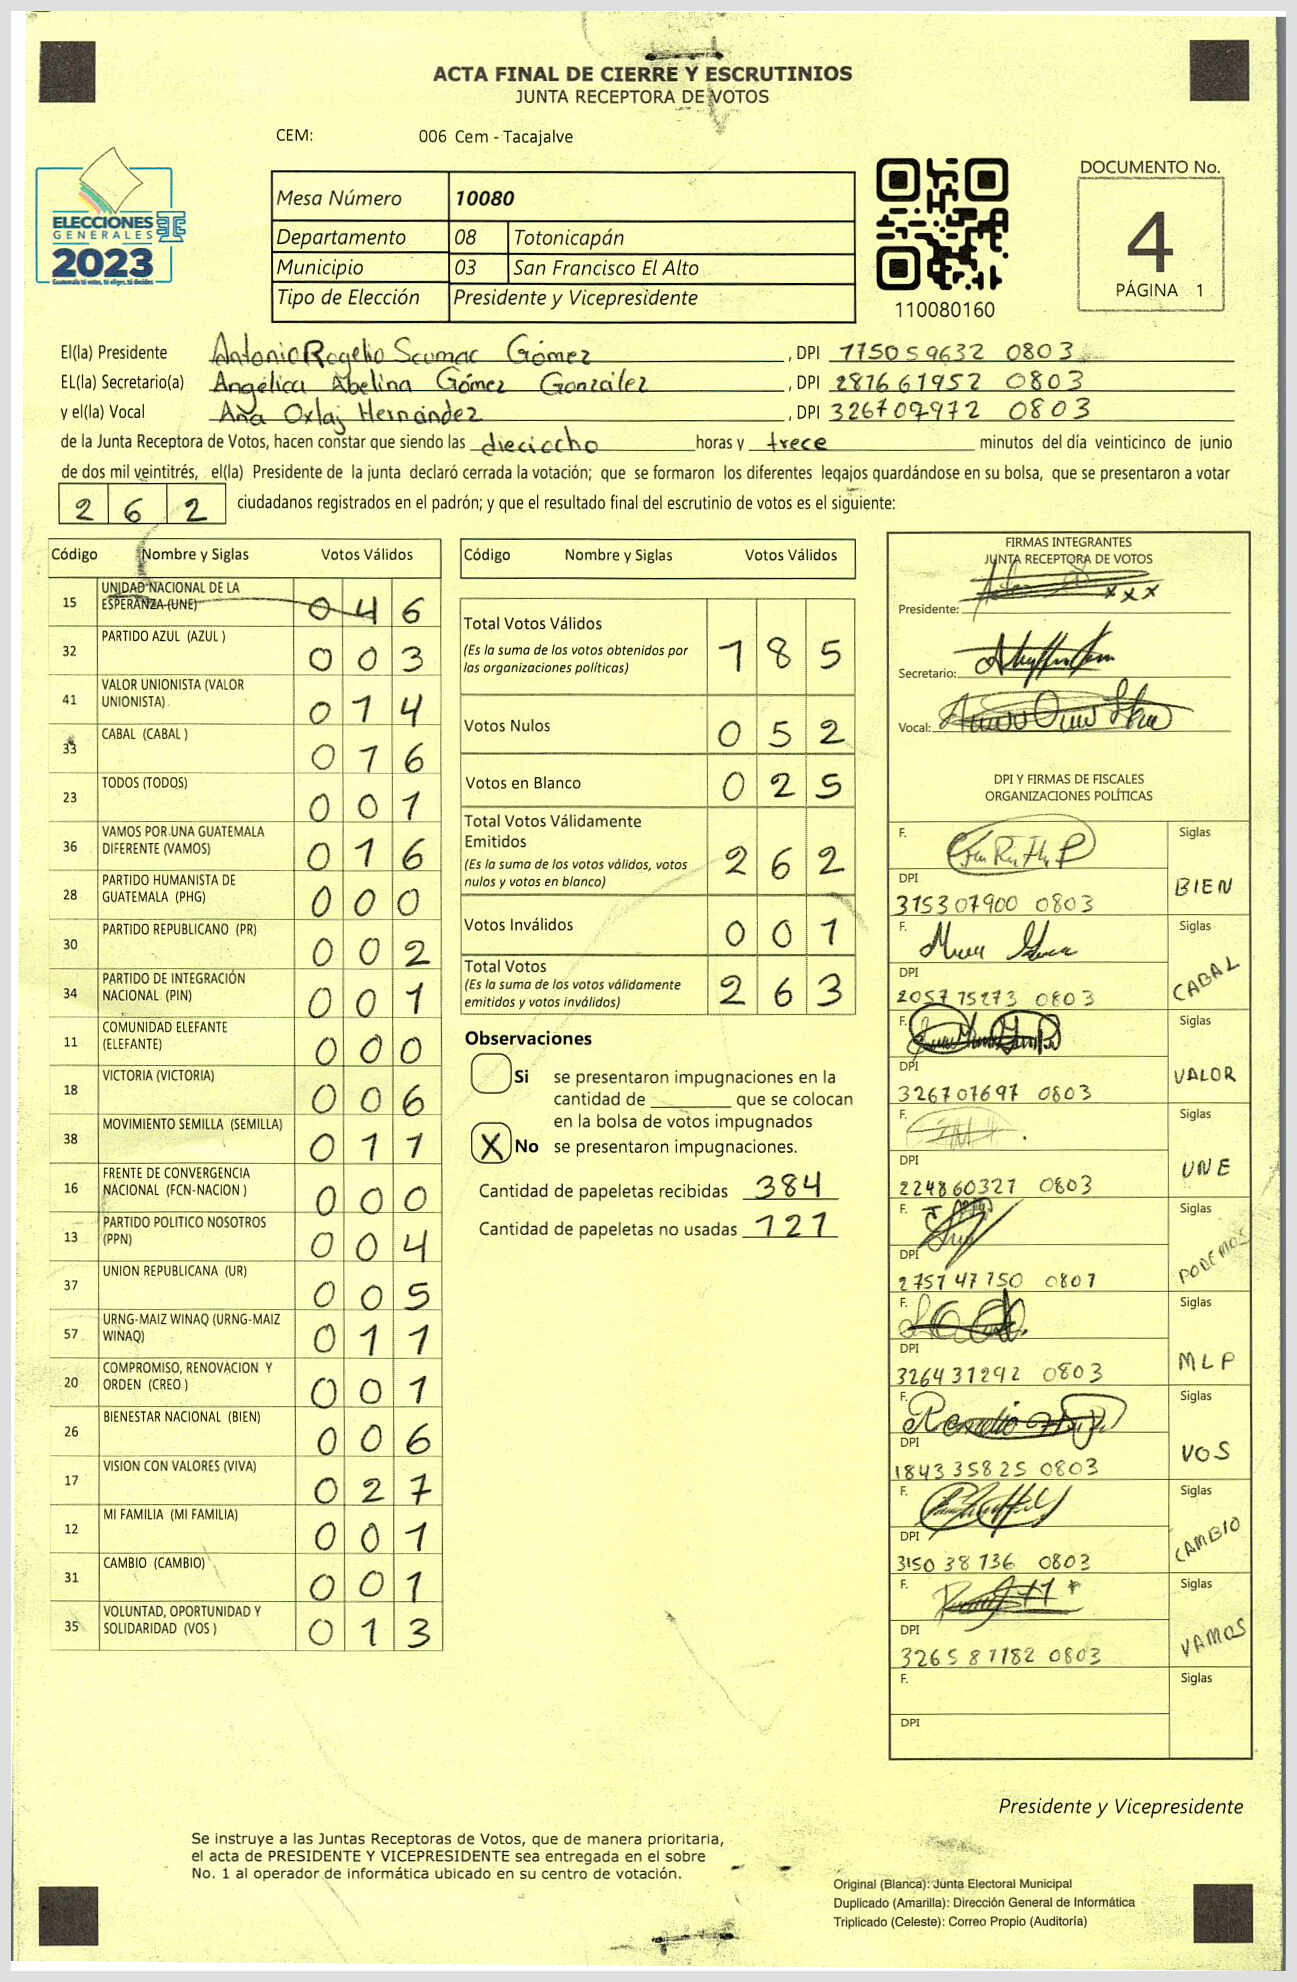 ACTA FINAL DE CIERRE Y ESCRUTINIOS
JUNTA RECEPTORA DE VOTOS
CEM: 006 Cem - Tacajalve
ELECCIONES
GENERALES
2023
Mesa Número 10080
Departamento 08 Totonicapán
Municipio 03 San Francisco El Alto
Tipo de Elección Presidente y Vicepresidente
110080160
DOCUMENTO No.
4
PÁGINA 1
El(la) Presidente Antonio Rogelio Scumac Gómez, DPI 175059632 0803
EL(la) Secretario(a) Angélica Abelina Gómez González, DPI 281661952 0803
y el(la) Vocal Ana Oxlaj Hernández, DPI 326707972 0803
de la Junta Receptora de Votos, hacen constar que siendo las dieciocho horas y trece minutos del día veinticinco de junio
de dos mil veintitrés, el(la) Presidente de la junta declaró cerrada la votación; que se formaron los diferentes legajos guardándose en su bolsa, que se presentaron a votar
262 ciudadanos registrados en el padrón; y que el resultado final del escrutinio de votos es el siguiente:
Código Nombre y Siglas Votos Válidos
15 UNIDAD NACIONAL DE LA ESPERANZA (UNE) 046
32 PARTIDO AZUL (AZUL ) 003
41 VALOR UNIONISTA (VALOR UNIONISTA) 014
33 CABAL (CABAL ) 016
23 TODOS (TODOS) 001
36 VAMOS POR UNA GUATEMALA DIFERENTE (VAMOS) 016
28 PARTIDO HUMANISTA DE GUATEMALA (PHG) 000
30 PARTIDO REPUBLICANO (PR) 002
34 PARTIDO DE INTEGRACIÓN NACIONAL (PIN) 001
11 COMUNIDAD ELEFANTE (ELEFANTE) 000
18 VICTORIA (VICTORIA) 006
38 MOVIMIENTO SEMILLA (SEMILLA) 011
16 FRENTE DE CONVERGENCIA NACIONAL (FCN-NACION ) 000
13 PARTIDO POLITICO NOSOTROS (PPN) 004
37 UNION REPUBLICANA (UR) 005
57 URNG-MAIZ WINAQ (URNG-MAIZ WINAQ) 011
20 COMPROMISO, RENOVACION Y ORDEN (CREO ) 001
26 BIENESTAR NACIONAL (BIEN) 006
17 VISION CON VALORES (VIVA) 027
12 MI FAMILIA (MI FAMILIA) 001
31 CAMBIO (CAMBIO) 001
35 VOLUNTAD, OPORTUNIDAD Y SOLIDARIDAD (VOS ) 013
Código Nombre y Siglas Votos Válidos
Total Votos Válidos 185
(Es la suma de los votos obtenidos por
las organizaciones políticas)
Votos Nulos 052
Votos en Blanco 025
Total Votos Válidamente
Emitidos 262
(Es la suma de los votos válidos, votos
nulos y votos en blanco)
Votos Inválidos 001
Total Votos 263
(Es la suma de los votos válidamente
emitidos y votos inválidos)
Observaciones
Si se presentaron impugnaciones en la
cantidad de ________ que se colocan
en la bolsa de votos impugnados
X No se presentaron impugnaciones.
Cantidad de papeletas recibidas 384
Cantidad de papeletas no usadas 121
FIRMAS INTEGRANTES
JUNTA RECEPTORA DE VOTOS
Presidente:
Secretario:
Vocal:
DPI Y FIRMAS DE FISCALES
ORGANIZACIONES POLÍTICAS
F. Siglas
DPI BIEN
315307900 0803
F. Siglas
DPI CABAL
2057 15273 0803
F. Siglas
DPI VALOR
326707697 0803
F. Siglas
DPI UNE
224860321 0803
F. Siglas
DPI PODEMOS
2751 47750 0801
F. Siglas
DPI MLP
326431292 0803
F. Siglas
DPI VOS
184335825 0803
F. Siglas
DPI CAMBIO
3150 38 136 0803
F. Siglas
DPI VAMOS
3265 81182 0803
F. Siglas
DPI
Presidente y Vicepresidente
Se instruye a las Juntas Receptoras de Votos, que de manera prioritaria,
el acta de PRESIDENTE Y VICEPRESIDENTE sea entregada en el sobre
No. 1 al operador de informática ubicado en su centro de votación.
Original (Blanca): Junta Electoral Municipal
Duplicado (Amarilla): Dirección General de Informática
Triplicado (Celeste): Correo Propio (Auditoría)